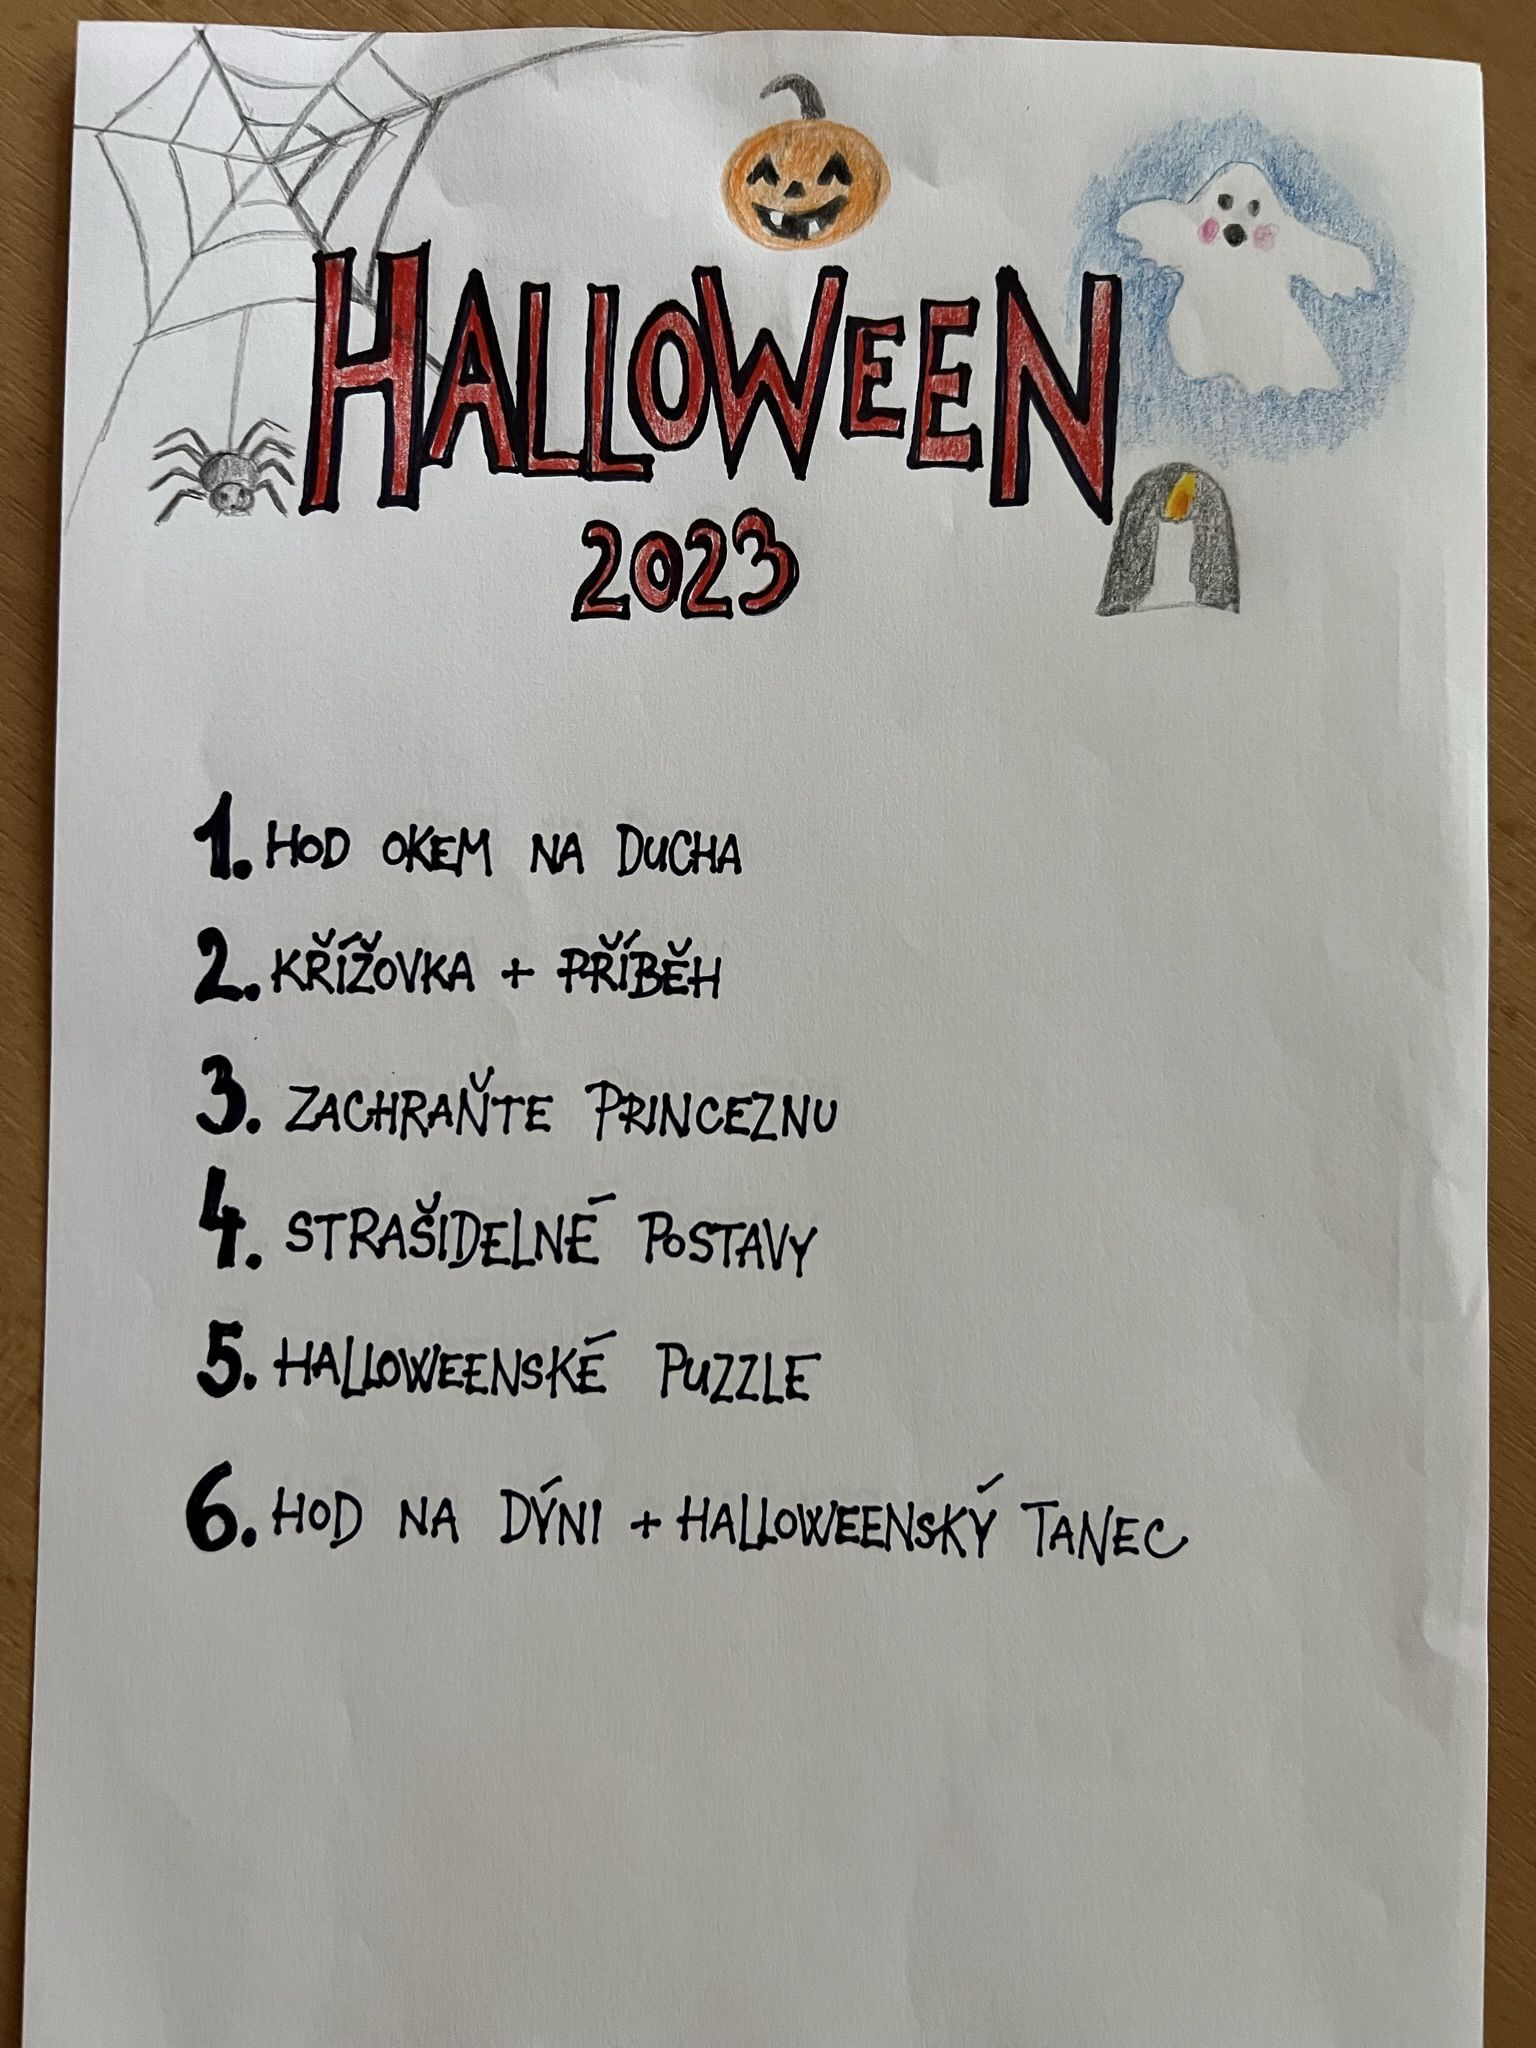 HALLOWEEN
2023
1. HOD OKEM NA DUCHA
2. KŘÍŽOVKA + PŘÍBĚH
3. ZACHRAŇTE PRINCEZNU
4. STRAŠIDELNÉ POSTAVY
5. HALLOWEENSKÉ PUZZLE
6. HOD NA DÝNI + HALLOWEENSKÝ TANEC